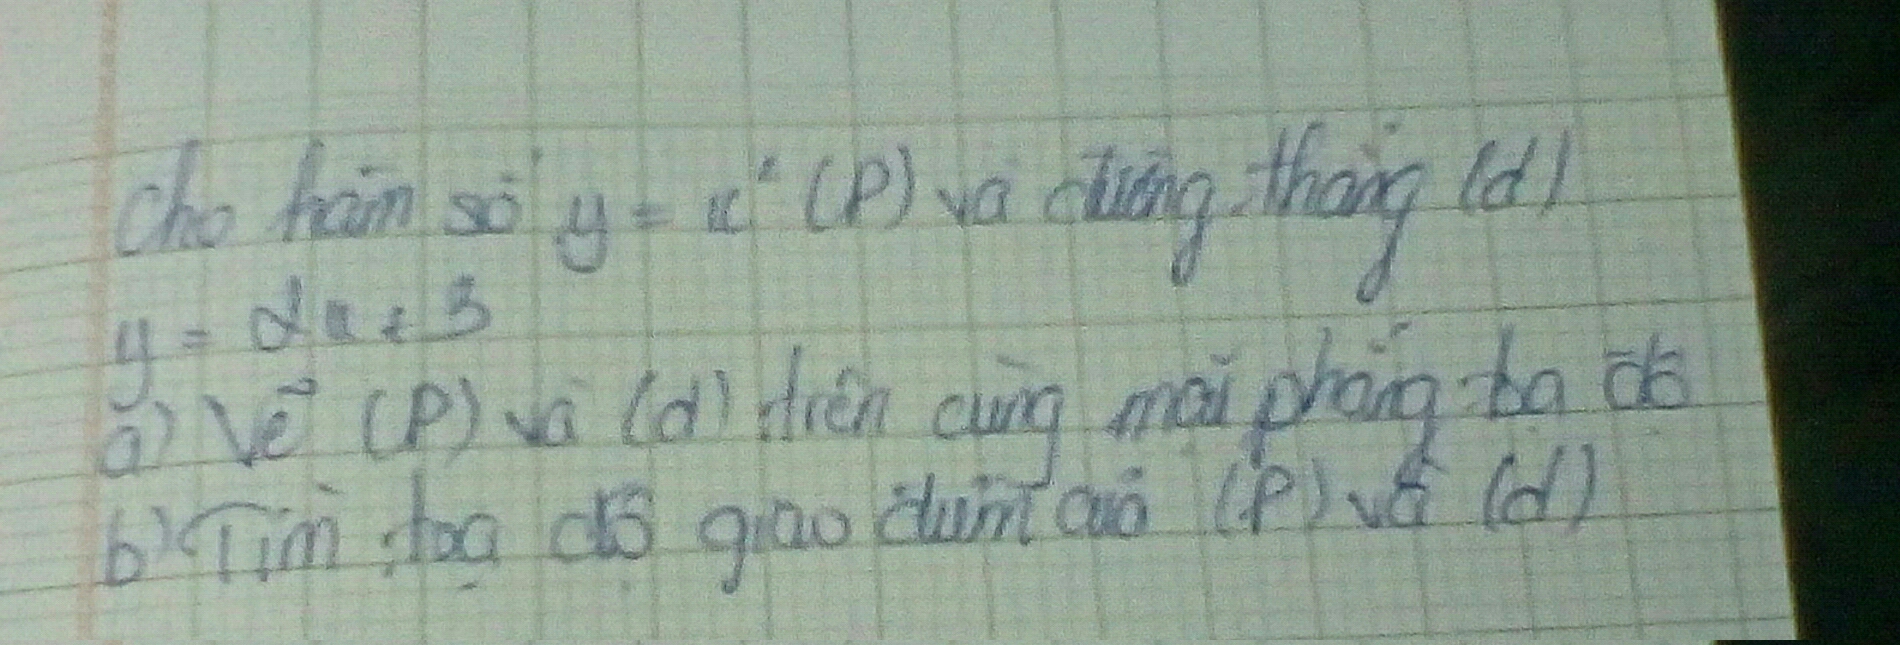 Cho hàm số y = x² (P) và đường thẳng (d)
y = 2x + 3
a) Vẽ (P) và (d) trên cùng mặt phẳng tọa độ
b) Tìm tọa độ giao điểm của (P) và (d)